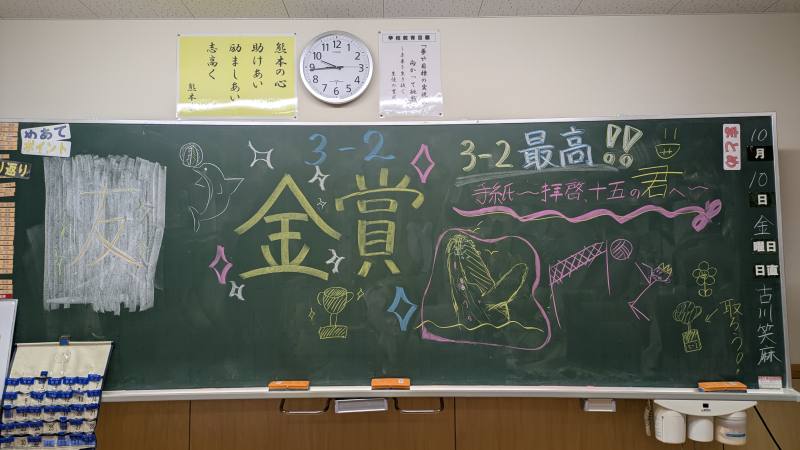 熊本の心
助けあい
励ましあい
志高く
熊本
学校教育目標
「夢や目標の実現に
向かって挑戦
12
1
2
3
4
5
6
7
8
9
10
11
めあて
ポイント
り返り
友
3-2
金賞
3-2 最高!!
手紙〜拝啓、十五の君へ〜
取ろう!
まとめ
10
月
10
日
金
曜日
日直
古川笑麻